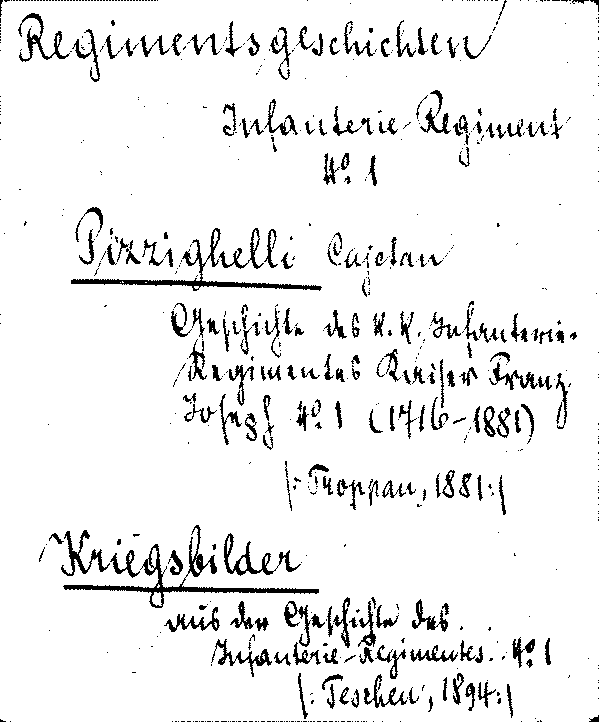 Regimentsgeschichten
Infanterie-Regiment
No. 1
Pizzighelli Cajetan
Geschichte des k. k. Infanterie-
Regimentes Kaiser Franz
Joseph No. 1 (1716-1881)
/: Troppau, 1881:/
Kriegsbilder
aus der Geschichte des
Infanterie-Regimentes No. 1
/: Teschen, 1894:/